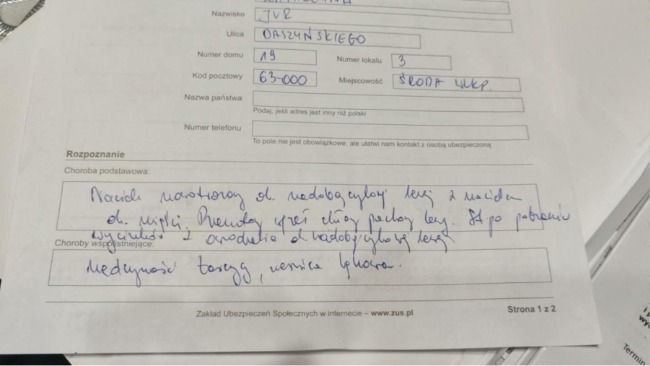 Nazwisko JUR
Ulica DASZYŃSKIEGO
Numer domu 19 Numer lokalu 3
Kod pocztowy 63-000 Miejscowość ŚRODA WLKP.
Nazwa państwa
Podaj, jeśli adres jest inny niż polski
Numer telefonu
To pole nie jest obowiązkowe, ale ułatwi nam kontakt z osobą ubezpieczoną
Rozpoznanie
Choroba podstawowa:
Naciek ok. nadobojczykowej lewej z naciekiem
ok. chłonny pachowy lewy. St. po pobraniu
wycinków z ok nadobojczykowej lewej
Choroby współistniejące:
tarczycy, nerwica lękowa.
Zakład Ubezpieczeń Społecznych w internecie – www.zus.pl Strona 1 z 2
Termin